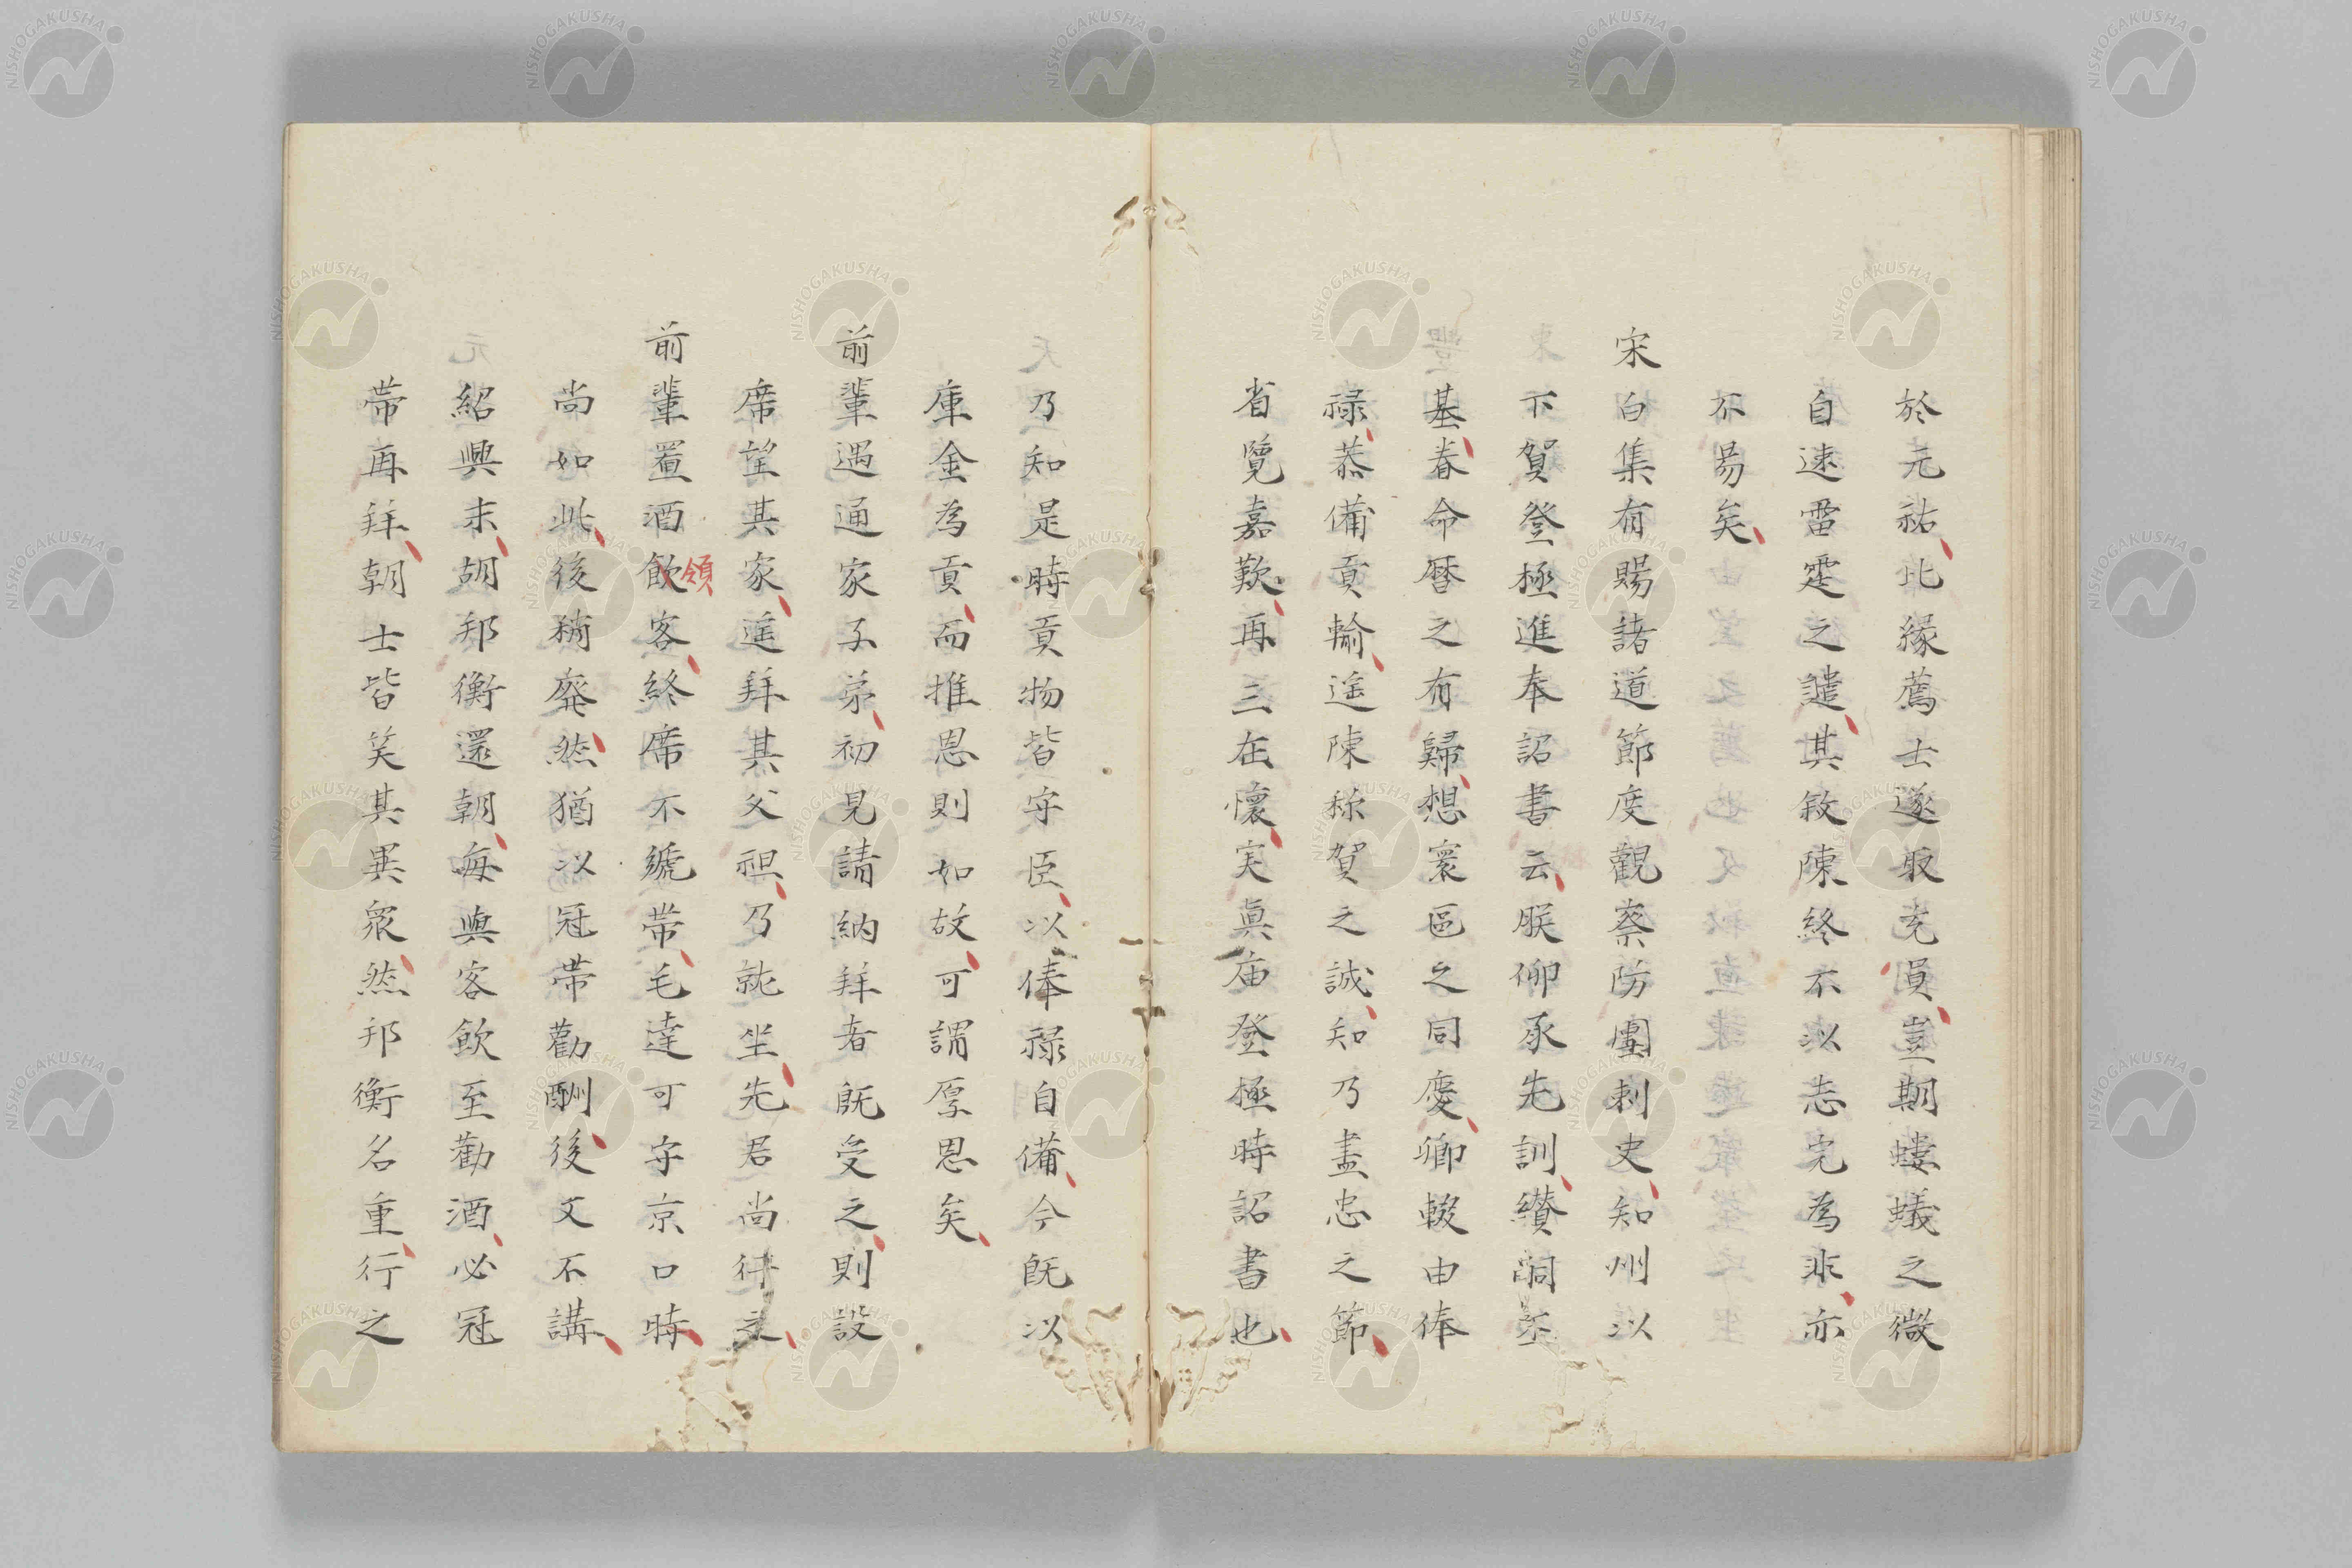 於元祐此緣薦士遂取充員豈期螻蟻之微
自速雷霆之譴其敘陳終不以忞完為非亦
不易矣
宋白集有賜諸道節度觀察防團刺史知州以
下賀登極進奉詔書云朕仰承先訓纉嗣丕
基眷命曆之有歸想寰區之同慶卿輟由俸
祿恭備貢輸遥陳称賀之誠知乃盡忠之節
省覽嘉歎再三在懷実真庙登極時詔書也
乃知是時貢物皆守臣以俸祿自備今既以
庫金為貢而推恩則如故可謂厚恩矣
前輩遇通家子弟初見請納拜者既受之則設
席望其家遥拜其父祖乃就坐先君尚行之
前輩置酒飲領客終席不褫帶毛達可守京口時
尚如此後稍廢然猶以冠帶勸酬後文不講
紹興末胡邦衡還朝每與客飲至勸酒必冠
帶再拜朝士皆笑其異衆然邦衡名重行之
NISHOGAKUSHA